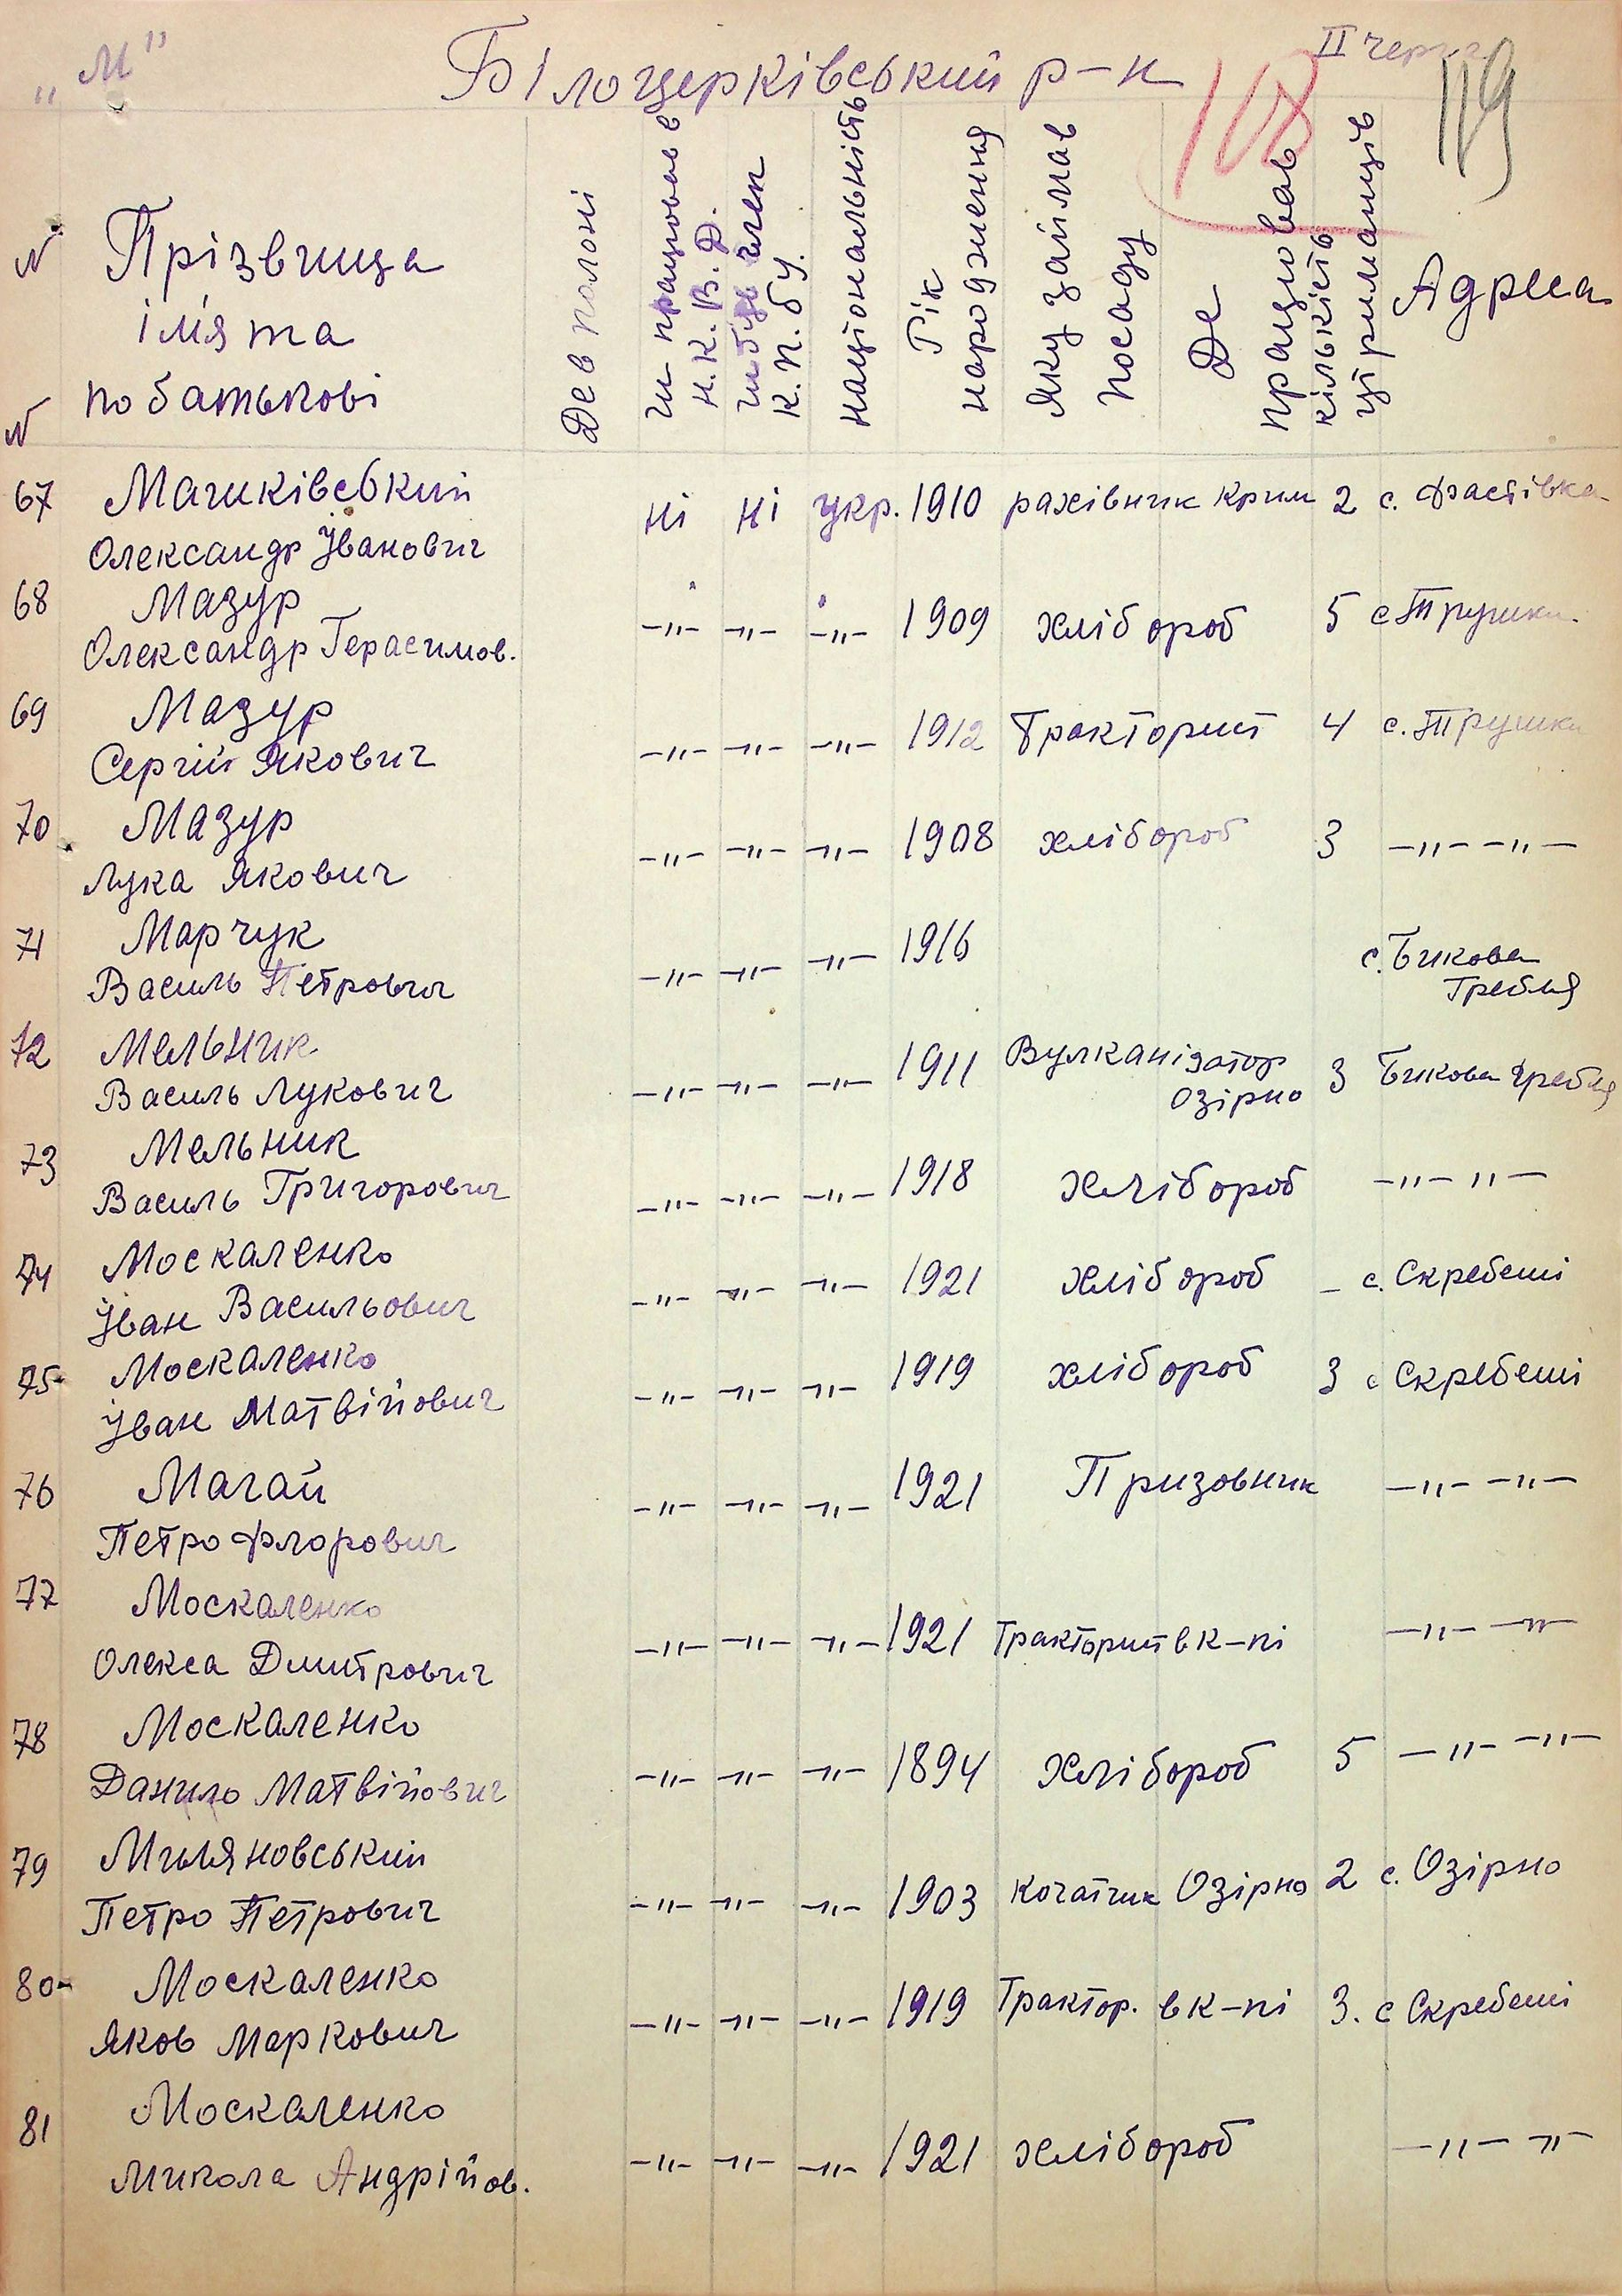 „М”
Білоцерківський р-н
II черга
108
119
№ Прізвища
ім'я та
по батькові
№
Де в полоні
чи працював в
Н.К.В.Д.
чи був член
К.П.бУ.
національність
Рік
народження
Яку займав
посаду
Де
працював
кількість
утриманців
Адреса
67 Машківський
Олександр Іванович ні ні укр. 1910 рахівник Крим 2 с. Фастівка
68 Мазур
Олександр Герасимов. -"- -"- -"- 1909 хлібороб 5 с Трушки
69 Мазур
Сергій Якович -"- -"- -"- 1912 Тракторист 4 с. Трушки
70 Мазур
Лука Якович -"- -"- -"- 1908 хлібороб 3 -"- -"-
71 Марчук
Василь Петрович -"- -"- -"- 1916 с. Бикова
Гребля
72 Мельник
Василь Лукович -"- -"- -"- 1911 Вулканізатор
Озірно 3 Бикова Гребля
73 Мельник
Василь Григорович -"- -"- -"- 1918 Хлібороб -"- "-
74 Москаленко
Іван Васильович -"- -"- -"- 1921 хлібороб - с. Скребеші
75 Москаленко
Іван Матвійович -"- -"- -"- 1919 хлібороб 3 с Скребеші
76 Магай
Петро Флорович -"- -"- -"- 1921 Призовник -"- -"-
77 Москаленко
Олекса Дмитрович -"- -"- -"- 1921 Тракторист в к-пі -"- -"-
78 Москаленко
Данило Матвійович -"- -"- -"- 1894 Хлібороб 5 -"- -"-
79 Миляновський
Петро Петрович -"- -"- -"- 1903 Кочатчик Озірно 2 с. Озірно
80 Москаленко
Яков Маркович -"- -"- -"- 1919 Трактор. в к-пі 3. с Скребеші
81 Москаленко
Микола Андрійов. -"- -"- -"- 1921 хлібороб -"- -"-